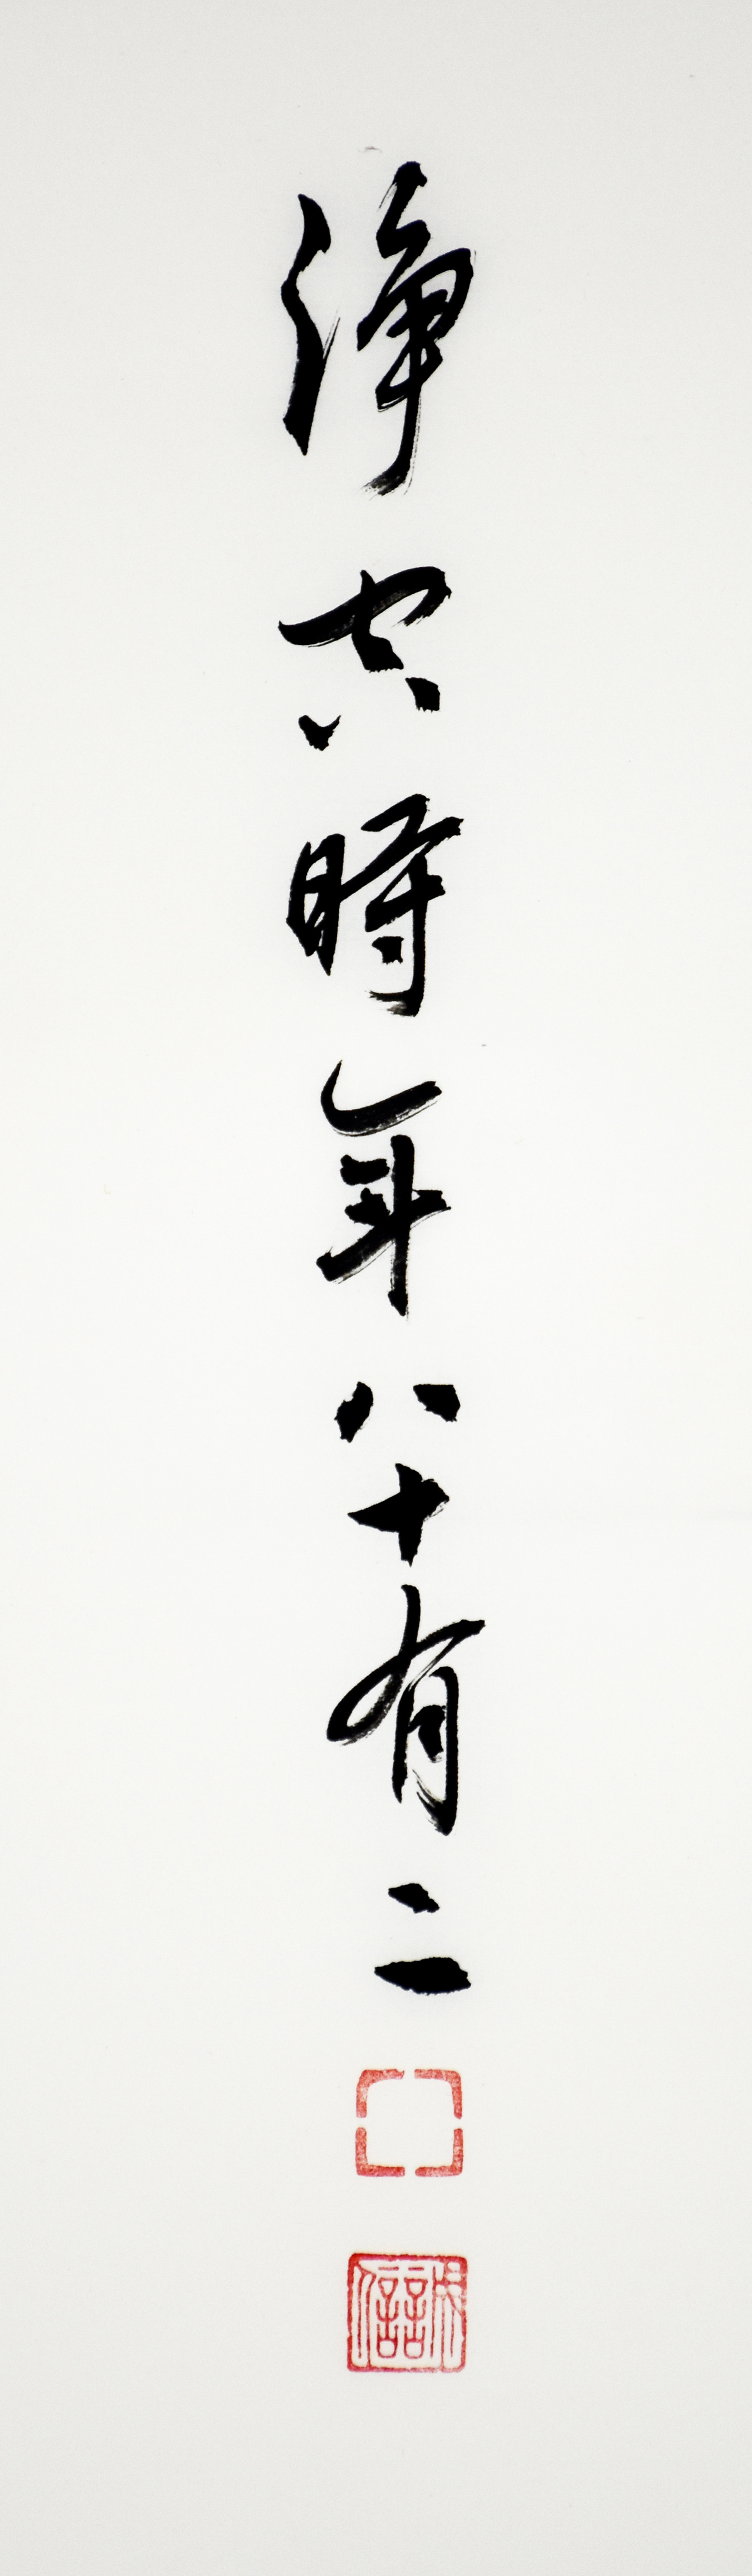 淨空時年八十有二